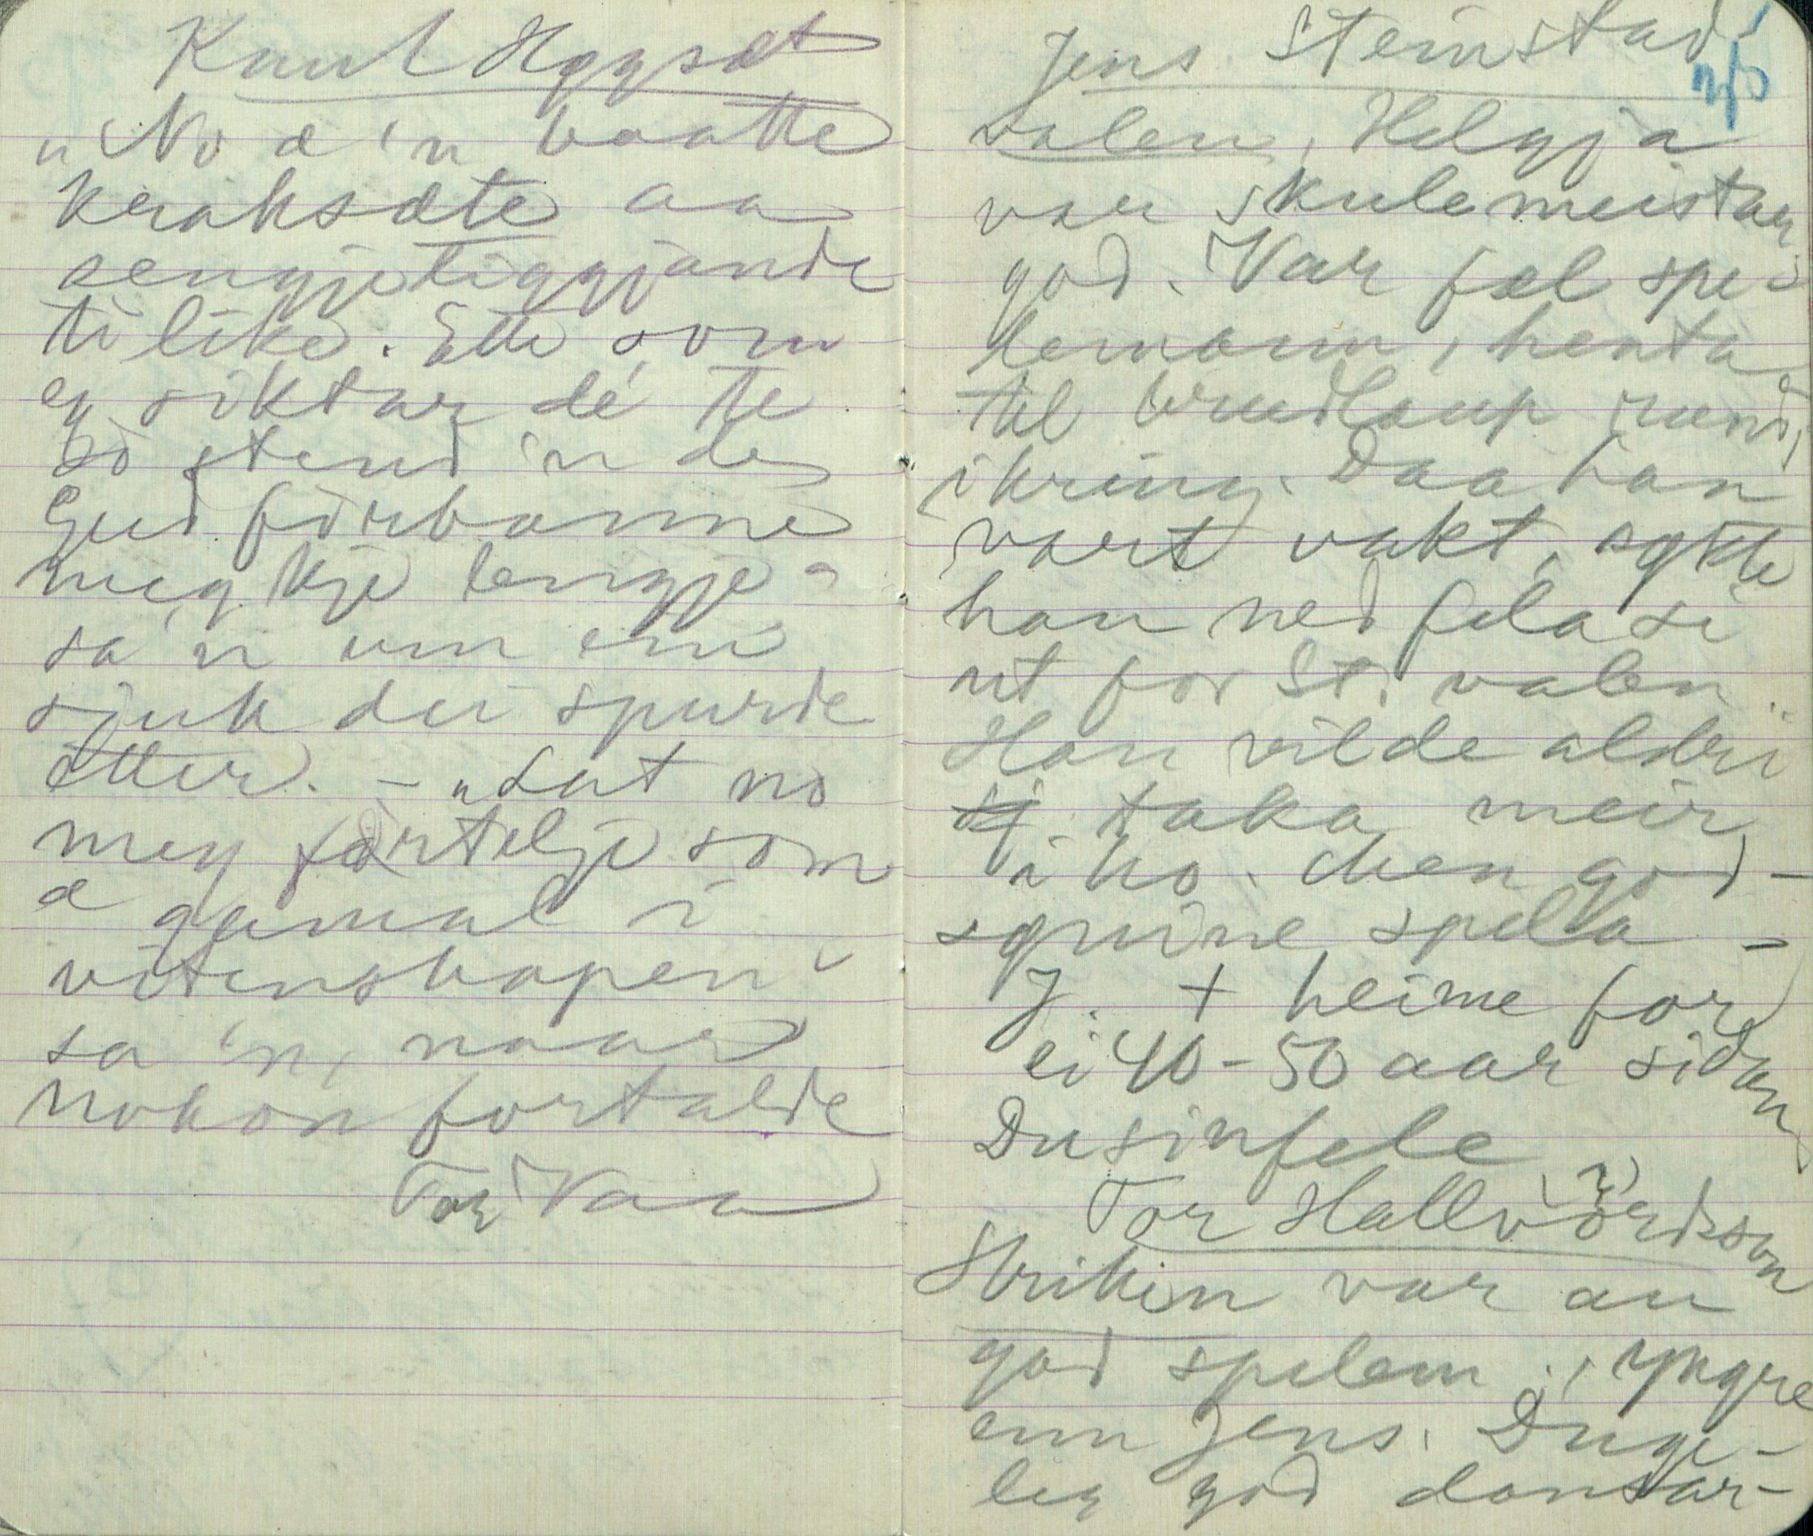 Knut Hyysæt
"No æ 'n baatte
kraksæte aa
sengjeliggjande
tilike. Ette som
eg siktar dé te
so stend 'n de
Gud førbanne
meg kje lengje"
sa 'n um ein
sjuk dei spurde
etter. - "Lat no
meg førtelje som
æ gamal i
vitenskapen"
sa 'n, naar
nokon fortalde
Tor Vaa
Jens Steinstad-
valen, Helgja
var skulemeistar
god. Var fæl spe-
lemann, henta
til brudlaup rund
ikring. Daa han
vart vakt, søkte
han ned fela si
ut for St. valen.
Han vilde aldri
taka meir
i ho. Men god-
spela -
J. + heime for
ei 40-50 aar sidan
Dusinfele
Tor Hallvordsson
Strikin var au
god spelem., yngre
enn Jens. Duge-
leg god dansar-